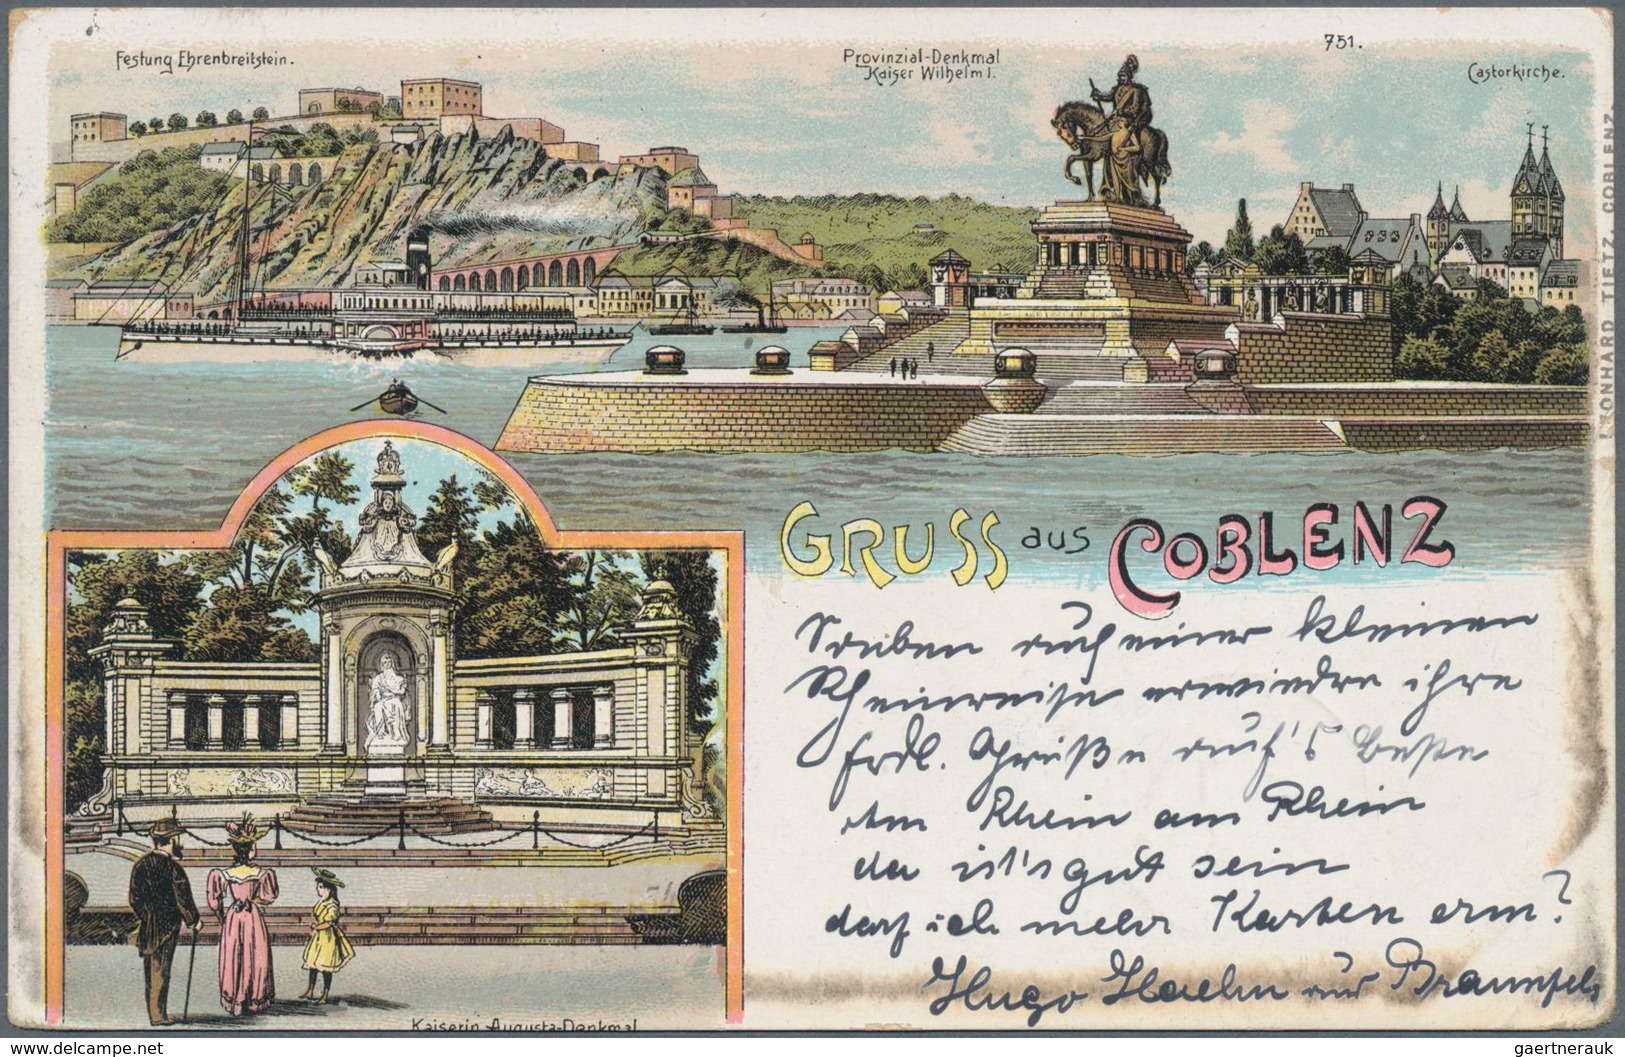 Festung Ehrenbreitstein.
Provinzial-Denkmal
Kaiser Wilhelm I.
751.
Castorkirche.
LEONHARD TIETZ, COBLENZ.
GRUSS aus COBLENZ
Soeben auf einer kleinen
Rheinreise erwiedre ihre
frdl. Grüße auf's Beste
Am Rhein am Rhein
da ist's gut sein
darf ich mehr Karten
Hugo aus Braunfels
Kaiserin Augusta-Denkmal
delcampe.net
gaertnerauk